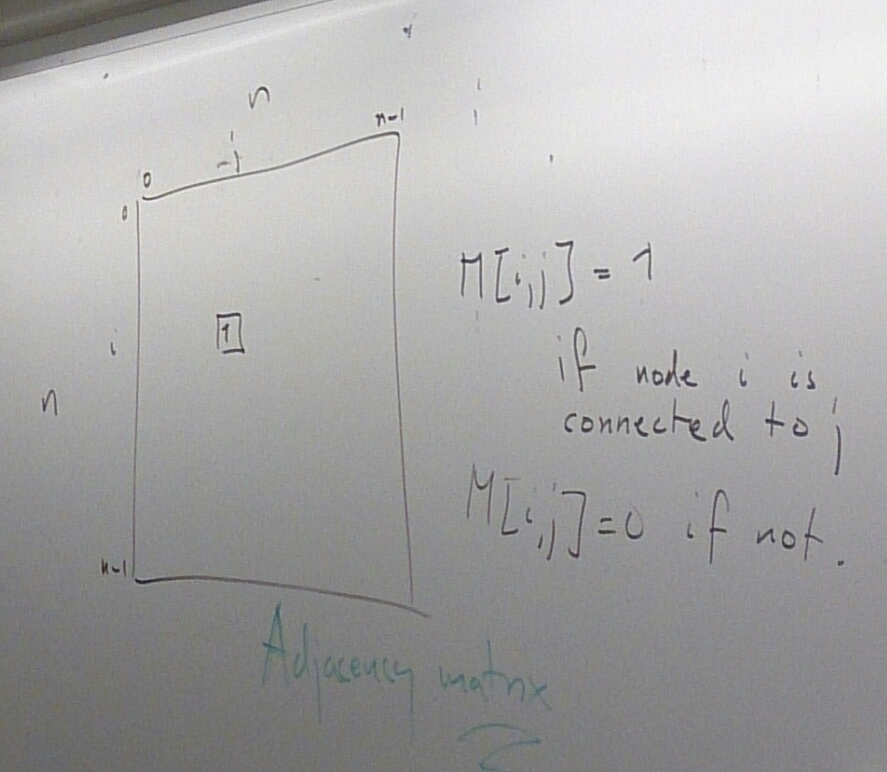 n
n-1
j
0
0
1
i
n
n-1
M[i,j] = 1
if node i is
connected to j
M[i,j]=0 if not.
Adjacency matrix